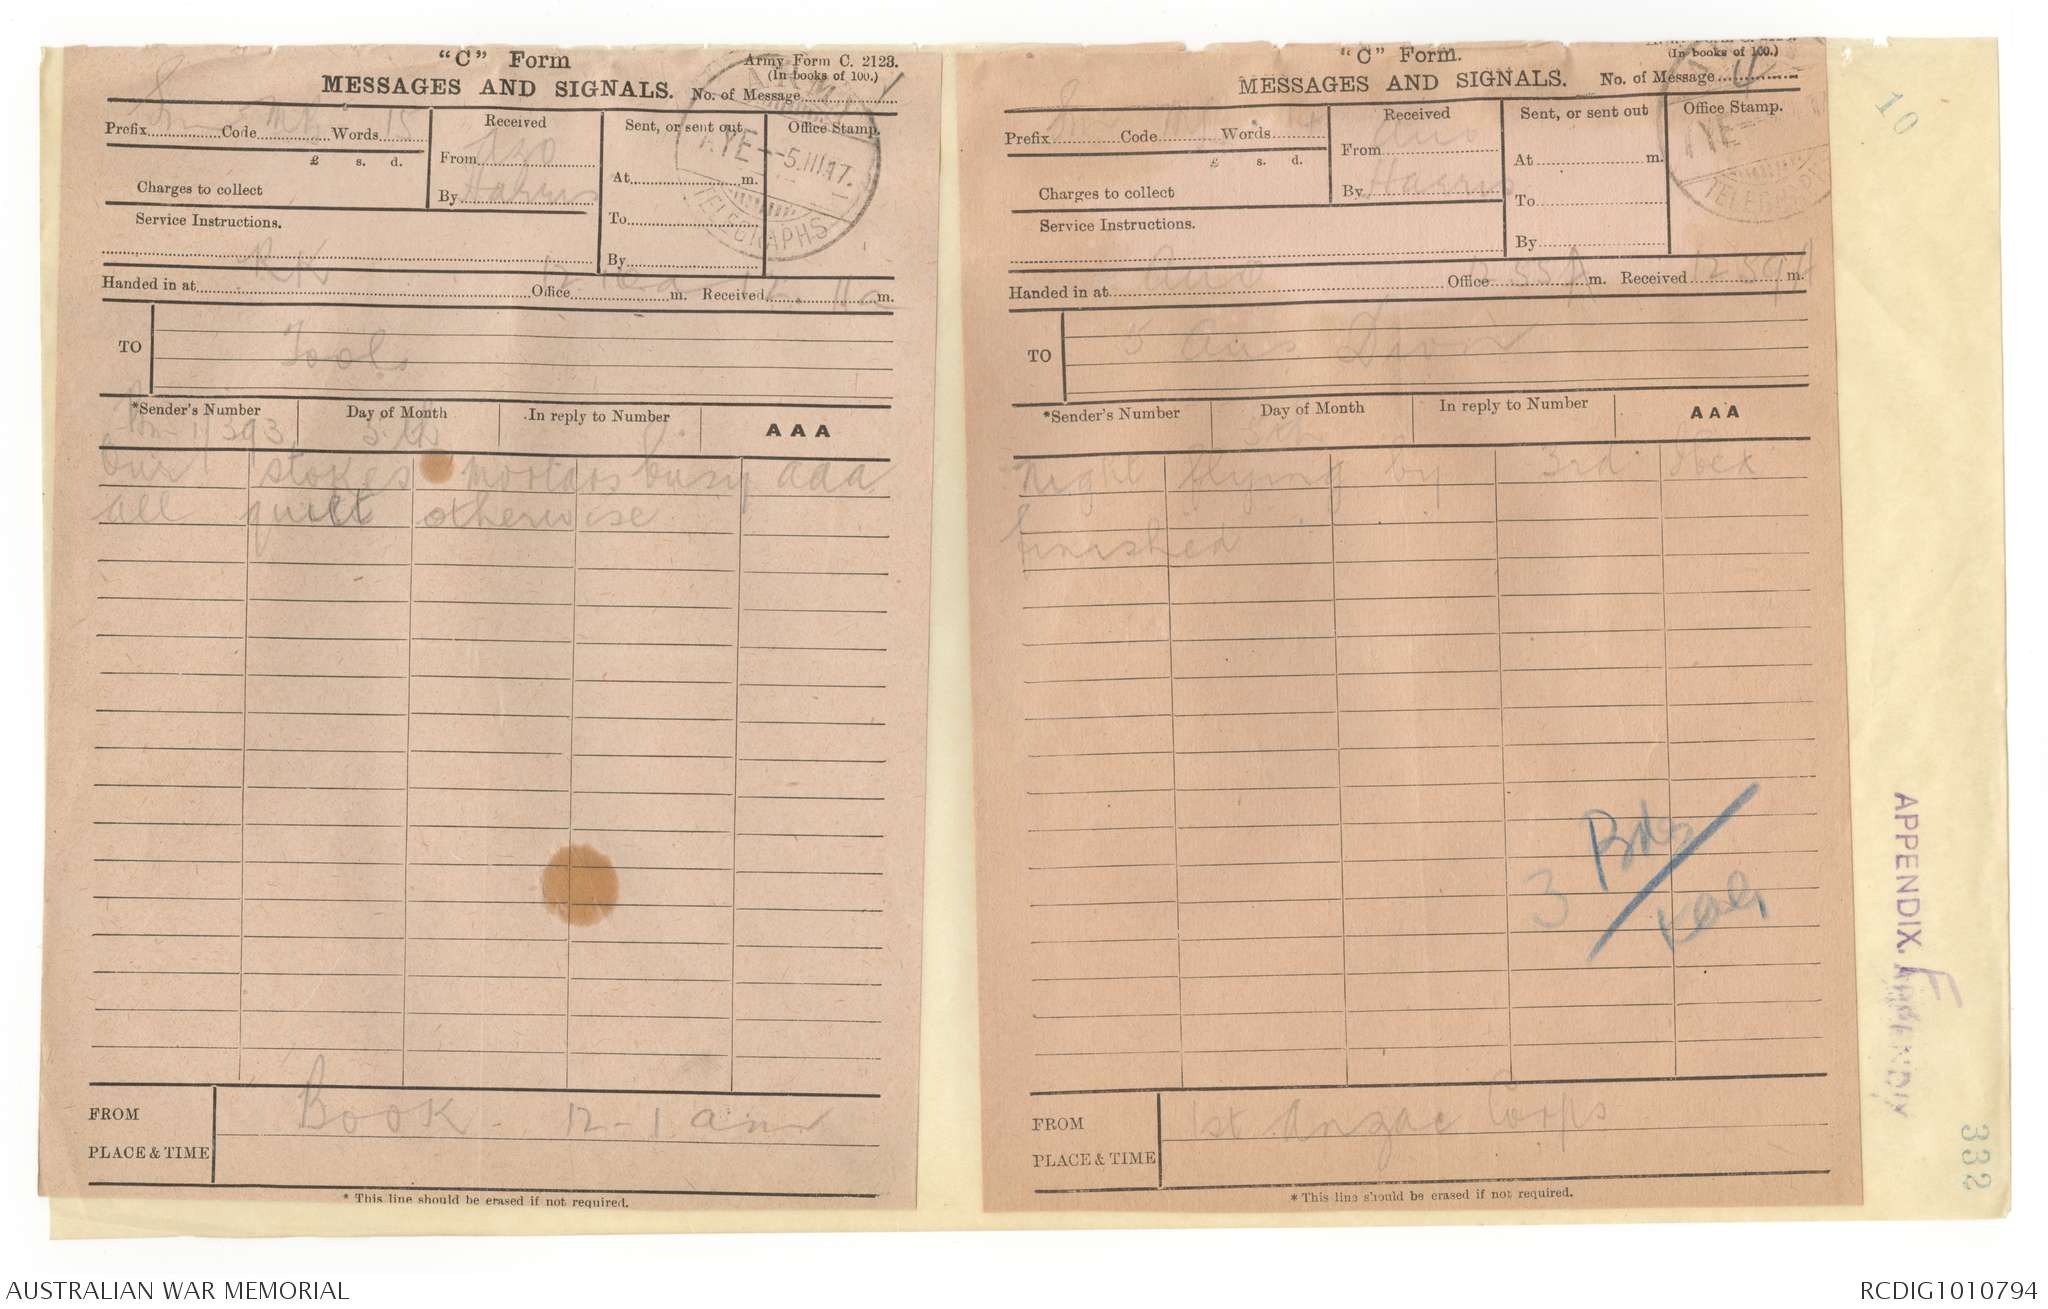 "C" Form
Army Form C. 2123.
(In books of 100.)
MESSAGES AND SIGNALS.
No. of Message
Prefix Sm Code Words 15
£ s. d.
Charges to collect
Service Instructions.
RK
Received
From
By Harris
Sent, or sent out
At m.
To
By
Office Stamp.
ARMY
5.III.17.
TELEGRAPHS
Handed in at Office m. Received m.
TO
Tool
*Sender's Number
Day of Month
In reply to Number
AAA
393
5th
Our stokes mortars busy aaa
all quiet otherwise
FROM
PLACE & TIME
Book - 12-1 am
* This line should be erased if not required.
"C" Form.
(In books of 100.)
MESSAGES AND SIGNALS.
No. of Message
Prefix Sm Code Words 14
£ s. d.
Charges to collect
Service Instructions.
Received
From
By Harris
Sent, or sent out
At m.
To
By
Office Stamp.
TELEGRAPHS
Handed in at Office 12.55A m. Received 12.59A m.
TO
5 Aus Divn
*Sender's Number
Day of Month
In reply to Number
AAA
5th
Night flying by 3rd Ibex
finished
3 Bdes
FROM
PLACE & TIME
1st Anzac Corps
* This line should be erased if not required.
10
APPENDIX. F
APPENDIX
332
AUSTRALIAN WAR MEMORIAL
RCDIG1010794